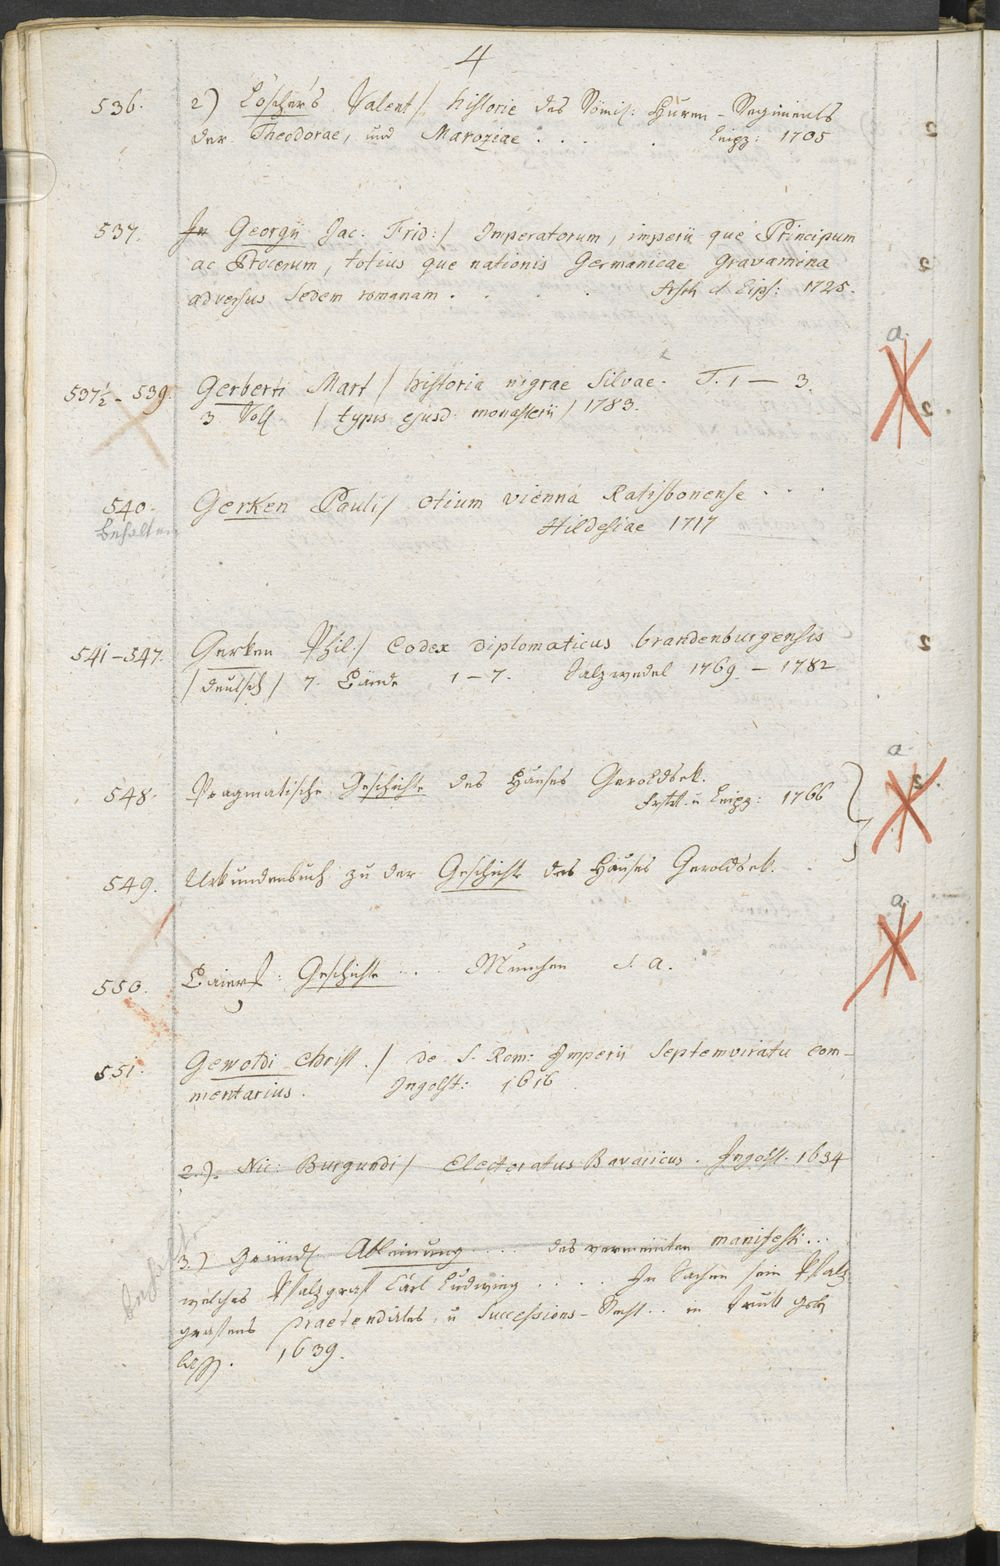 4
536. 2) Löscher's Valent/ historie des Römis: Huren-Regiments
der Theodorae, und Maroziae . . . . Leipz: 1705
537. Georgii Jac: Frid:/ Imperatorum, imperii que Principum
ac Procerum, totius que nationis Germanicae gravamina
adversus Sedem romanam . . . . Lips: 1725.
a.
537½ - 539. Gerberti Mart/ historia nigrae Silvae. T. 1 — 3.
3 Voll / typis ejusd: monasterii / 1783.
540. Gerken Pauli/ otium vienna Ratisbonense . . .
behalten Hildesiae 1717
541-547. Gerken Phil:/ Codex diplomaticus brandenburgensis
/ deutsch / 7. Bände 1-7. Salzwedel 1769 - 1782
a.
548. Pragmatische Geschichte des Hauses Geroldsek.
Frkft. u Leipz: 1766
549. Urkundenbuch zu der Geschichte des Hauses Geroldsek.
a.
550. Baiers: Geschichte . . . München s. a.
551. Gewoldi Christ./ de S. Rom: Imperii Septemviratu com-
mentarius. Ingolst: 1616
2.). Nic: Burgundi/ Electoratus Bavaricus. Ingolst. 1634
3.) Gründl. Ableinung . . . . des vermeinten manifesti...
welches Pfalzgraf Carl Ludwig . . . . In Sachen sein Pfalz
grafens praetendirtes, u Successions-Recht . . in Truk geb
lass. 1639.